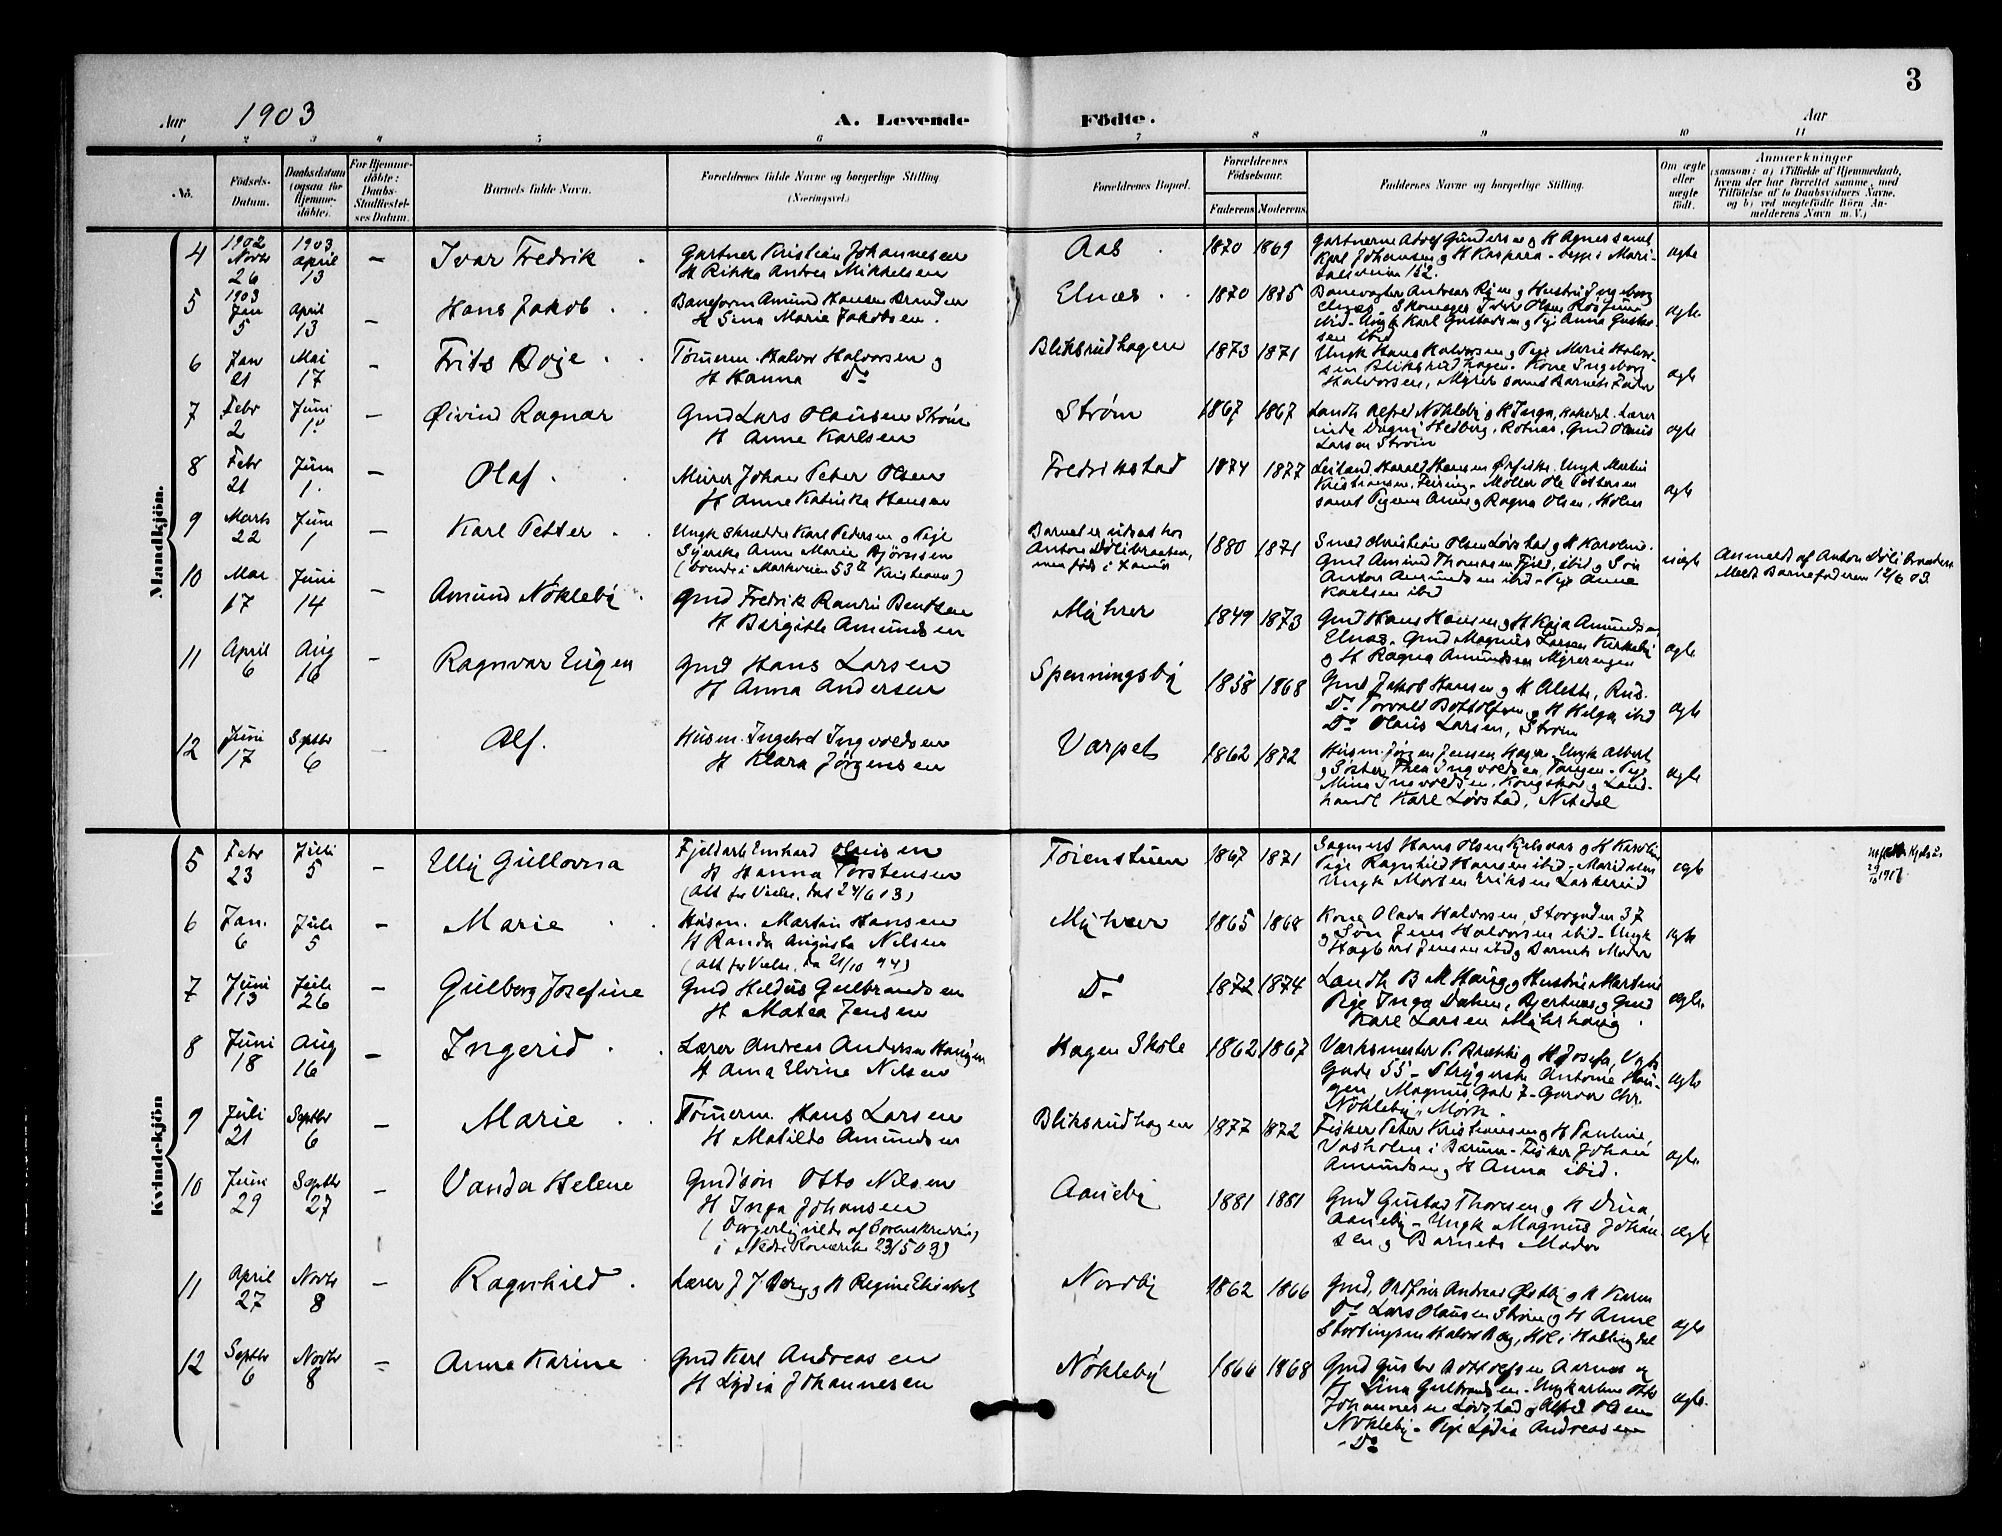 3
Aar 1903 A. Levende Födte. Aar
1 2 3 4 5 6 7 8 9 10 11
No. Födsels-Datum. Daabsdatum (ogsaa for Hjemmedöbte). For Hjemmedöbte: Daabs-Stadfæstelses Datum. Barnets fulde Navn. Forældrenes fulde Navne og borgerlige Stilling. (Næringsvei.) Forældrenes Bopæl. Forældrenes Födselsaar. Faderens. Moderens. Faddernes Navne og borgerlige Stilling. Om ægte eller uægte födt. Anmærkninger (saasom: a) i Tilfælde af Hjemmedaab, hvem der har forrettet samme, med Tilföielse af to Daabsvidners Navne. og b) ved uægtefödte Börn Anmelderens Navn m. V.)
Mandkjön.
4 1902 Novbr 26 1903 April 13 — Ivar Fredrik Gartner Kristian Johannesen
H Rikka Andrea Mikkelsen Aas 1870 1869 Gartnerne Adolf Gundersen og H Agnes samt
Karl Johansen og H Kaspara - begge i Mari-
dalsveien 162. ægte
5 1903 Jan 5 April 13 — Hans Jakob Baneform Amund Hansen Branden
H Sina Marie Jakobsen Elnæs 1870 1875 Banevogter Andreas Rjen og Hustru Ingeborg
Elnæs - Skomager Iver Olsen
ibid - Ungk Karl Gustavsen og Pige Anna Gustav-
sen ibid ægte
6 Jan 21 Mai 17 — Frits Doje Tömerm. Halvor Halvorsen og
H Hanna Do Bliksrudhagen 1873 1871 Ungk Hans Halvorsen og Pige Marie Halvor-
sen Bliksrudhagen. Kone Ingeborg
Halvorsen, Myrer samt Barnets Fader ægte
7 Febr 2 Juni 1. — Øivind Ragnar Gmd Lars Olausen Strøm
H Anne Karlsen Strøm 1867 1867 Landh Alfred Nökleby og H Inga, Hakedal. Lærer
inde Dagny Hedberg, Rotnæs. Gmd Olaus
Larsen Strøm ægte
8 Febr 21 Juni 1. — Olaf Murer Johan Peter Olsen
H Anne Katinka Hansen Fredrikstad 1874 1877 Harald Hansen Ørfiske. Ungk Martin
Kristiansen, Feiring - Møller Ole Pettersen
samt Pigerne Anna og Ragna Olsen, Holm ægte
9 Marts 22 Juni 1 — Karl Petter Ungk Skrædder Karl Pedersen og Pige
Syerske Anne Marie Bjørnsen
(boende i Markveien 53 II Kristiania) Barnet er udsat hos
Anton Dølibraaten,
men født i 1880 1871 Smed Christian Olsen Løvstad og H Karoline.
Gmd Amund Thomassen Fjeld, ibid og Søn
Anton Amundsen ibid - Pige Anne
Karlsen ibid uægte Anmeldt af Anton Dølibraaten
Meldt Barnefaderen 12/6 03.
10 Mai 17 Juni 14 — Amund Nökleby Gmd Fredrik Randin Bentsen
H Birgitte Amundsen Myhrer 1849 1873 Gmd Hans Hansen og H Kaja Amundsen
Elnæs. Gmd Magnus Larsen Kirkeby
og H Ragna Amundsen Myrerengen ægte
11 April 6 Aug 16 — Ragnvar Eugen Gmd Hans Larsen
H Anna Andersen Spenningsby 1858 1868 Gmd Jakob Hansen og H Alette, Rud.
Do Torvald Bottolfsen og H Helga, ibid
Do Olaus Larsen, Strøm ægte
12 Juni 17 Septbr 6 — Alf. Husm. Ingebret Ingvoldsen
H Klara Jørgensen Varpet 1862 1872 Husm. Jørgen Jensen Hagen. Ungk Albert
og Søster Thea Ingvoldsen, Tangen - Pige
Mina Ingvoldsen, Kongskog og Land-
handl Karl Løvstad, Nitedal ægte
Kvindekjön
5 Febr 23 Juli 5 — Elly Gullovna Fjeldarb Einhard Olausen
H Hanna Torstensen
(Att for Vielse, dat 24/6 03) Toienstuen 1867 1871 Sagmest Hans Olsen Kjelsaas og H Karoline
Pige Ragnhild Hansen ibid, Maridalen
Ungk Morten Eriksen Laskerud ægte Kjelsaas
29/10 1917
6 Jan. 6 Juli 5 — Marie Husm. Martin Hansen
H Randa Augusta Nilsen
(Att for Vielse, da 21/10 94) Myhrer 1865 1868 Kone Olava Halvorsen, Storgaden 37
og Søn Jens Halvorsen ibid - Ungk
Hagbart Jensen ibid og Barnets Moder ægte
7 Juni 13 Juli 26 — Gulborg Josefine Gmd Hildus Gulbrandsen
H Matea Jensen Do 1872 1874 Landh B M Haug og Hustru Martine
Pige Inga Dahen, Bjertnæs og Gmd
Karl Larsen Myhrhaug. ægte.
8 Juni 18 Aug 16 — Ingerid Lærer Andreas Andersen Haugen
H Anna Elvine Nilsen Hagen Skole 1862 1867 Værksmester P. Brække og H Josefa, Vogts
Gade 55 - Strygerske Antonie Hau-
gen, Magnus Gad 7 - Garver Chr.
Nökleby, Mørk. ægte
9 Juli 21 Septbr 6 — Marie Tömerm. Hans Larsen
H Matilde Amundsen Bliksrudhagen 1877 1872 Fisker Peter Kristiansen og H Pauline,
Vasholmen i Bærum - Fisker Johan
Amundsen og H Anna ibid. ægte.
10 Juni 29 Septbr 27 — Vanda Helene Gmdsön Otto Nilsen
H Inga Johansen
(borgerlig viede af Sorenskriveren
i Nedre Romerike 23/5 03) Aaneby 1881 1881 Gmd Gustav Thoresen og H Dina,
Aaneby - Ungk Magnus Johan-
sen og Barnets Moder ægte
11 April 27 Novbr 8 — Ragnhild Lærer J. J. Berg og H Regine Elisabet Nordby 1862 1866 Gmd, Ordfører Andreas Østby og H Karen
Do Lars Olausen Strøm og H Anne
Stortingsm Halvor Berg, Hol i Hallingdal ægte
12 Septbr 6 Novbr 8 — Anna Karine Gmd Karl Andreasen
H Lydia Johannesen Nökleby 1866 1868 Gmd Gustav Adolfsen Aarnæs og
H Lina Gulbrandsen - Ungkarlene Otto
Johannesen Løvstad og Alfred Olsen
Nökleby - Pige Lydia Andreasen
- Do ægte.